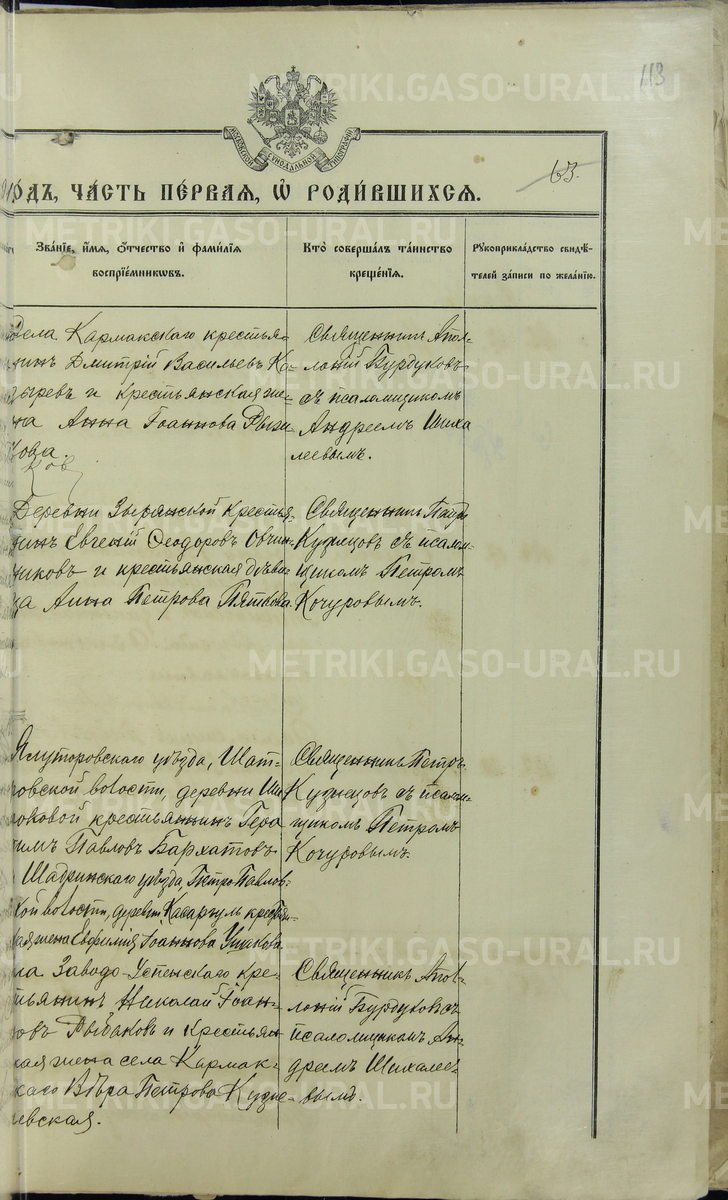 113
МОСКОВСКОЙ СѴНОДАЛЬНОЙ ТИПОГРАФІИ
63.
ГО́ДЪ, ЧА́СТЬ ПЕ́РВАЯ, Ѽ РОДИ́ВШИХСЯ.
Зва́нїе, и҆́мя, ѻ҆́тчество и҆ фами́лїя
воспрїе́мникѡвъ.
Кто̀ соверша́лъ та́инство
креще́нїя.
Рꙋкоприкла́дство свидѣ́-
телей за́писи по жела́нїю.
Села Кармакскаго крестья-
нинъ Дмитрій Васильевъ Ко-
зыревъ и крестьянская же-
на Анна Іоаннова Рыжи
кова.
ков
Священникъ Апол-
лоній Бурдуковъ
съ псаломщикомъ
Андреемъ Шиха
леевымъ.
Деревни Зырянской крестья-
нинъ Евгеній Ѳеодоровъ Овчин-
никовъ и крестьянская дѣви-
ца Анна Петрова Пяткова
Священникъ Петръ
Кузнецовъ съ псалом-
щикомъ Петромъ
Кочуровымъ.
Ялуторовскаго уѣзда, Шат-
ровской волости, деревни Ши
ковой крестьянинъ Гера
симъ Павловъ Бархатовъ
Шадринскаго уѣзда, Петропавлов-
ской волости, деревни Касаргуль крестьян
ская жена Евфимія Іоаннова Ушкова
Священникъ Петръ
Кузнецовъ съ псалом-
щикомъ Петромъ
Кочуровымъ.
села Заводо-Успенскаго кре-
стьянинъ Николай Іоан-
новъ Рыбаковъ и крестьян
ская жена села Кармак-
скаго Вѣра Петрова Кузне-
чевская.
Священникъ Апол-
лоній Бурдуковъ съ
псаломщикомъ Ан-
дреемъ Шихалее-
вымъ.
METRIKI.GASO-URAL.RU
METRIKI.GASO-URAL.RU
METRIKI.GASO-URAL.RU
METRIKI.GASO-URAL.RU
METRIKI.GASO-URAL.RU
METRIKI.GASO-URAL.RU
METRIKI.GASO-URAL.RU
METRIKI.GASO-URAL.RU